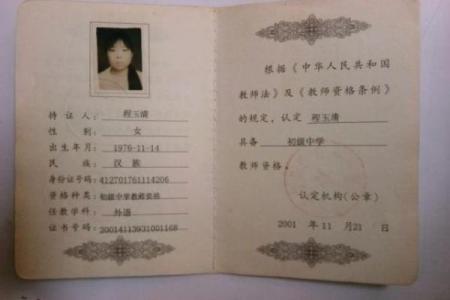 持 证 人：程玉清
性 别：女
出生年月：1976-11-14
民 族：汉 族
身份证号码：412701761114206
资格种类：初级中学教师资格
任教学科：外语
证书号码：20014113931001168
根据《中华人民共和国
教师法》及《教师资格条例》
的规定，认定 程玉清
具备 初级中学
教师资格。
认定机构(公章)
2001 年 11 月 21 日